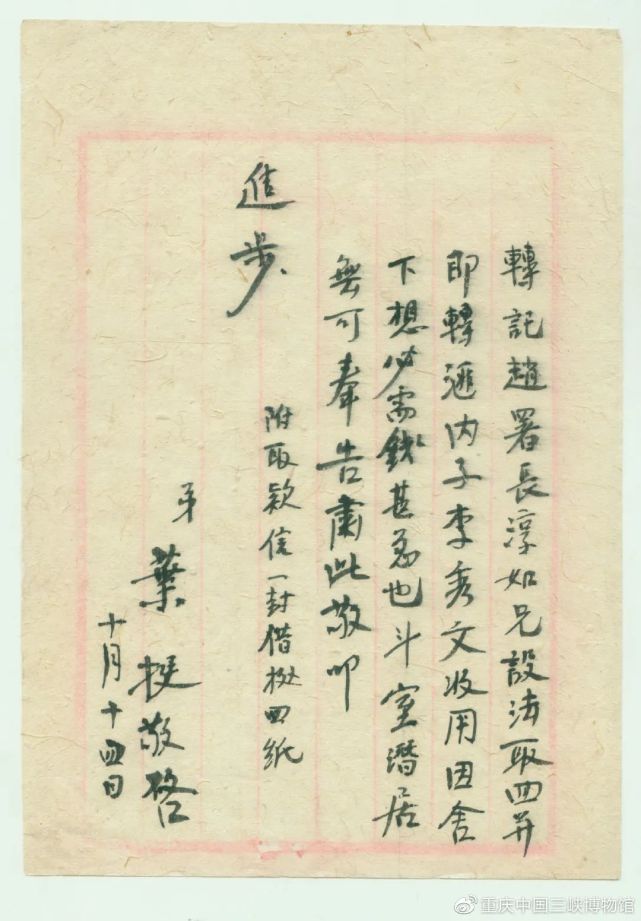 轉託趙署長淳如兄設法取回并
即轉滙内子李秀文收用因舍
下想必需錢甚急也斗室潛居
無可奉告肅此敬叩
進步
附取款信一封借據四紙
弟
葉挺敬啓
十月十四日
@重庆中国三峡博物馆